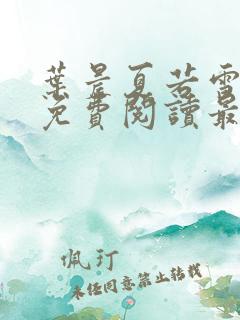 葉晨夏若雪
免費閱讀最
佩玎
未經同意禁止轉載